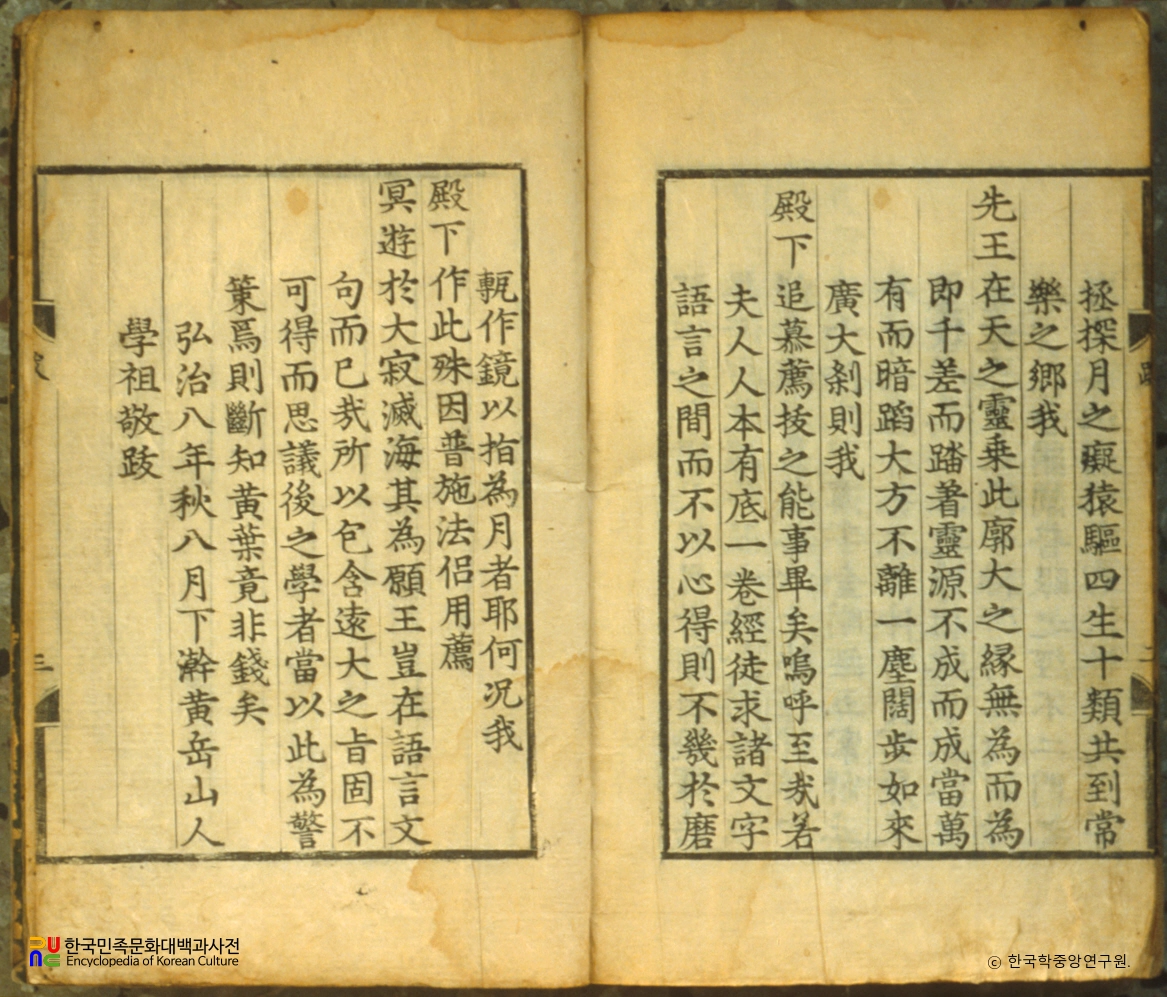 拯探月之癡猿驅四生十類共到常
樂之鄉我
先王在天之靈乗此廓大之縁無為而為
即千差而踏著靈源不成而成當萬
有而暗蹈大方不離一塵闊步如來
廣大刹則我
殿下追慕薦拔之能事畢矣嗚呼至㢤若
夫人人本有底一卷經徒求諸文字
語言之間而不以心得則不幾於磨
甎作鏡以指為月者耶何况我
殿下作此殊因普施法侣用薦
冥遊於大寂滅海其為願王豈在語言文
句而已㢤所以包含遠大之旨固不
可得而思議後之學者當以此為警
策焉則斷知黄葉竟非錢矣
弘治八年秋八月下澣黄岳山人
學祖敬跋
三
한국민족문화대백과사전
Encyclopedia of Korean Culture
ⓒ 한국학중앙연구원.